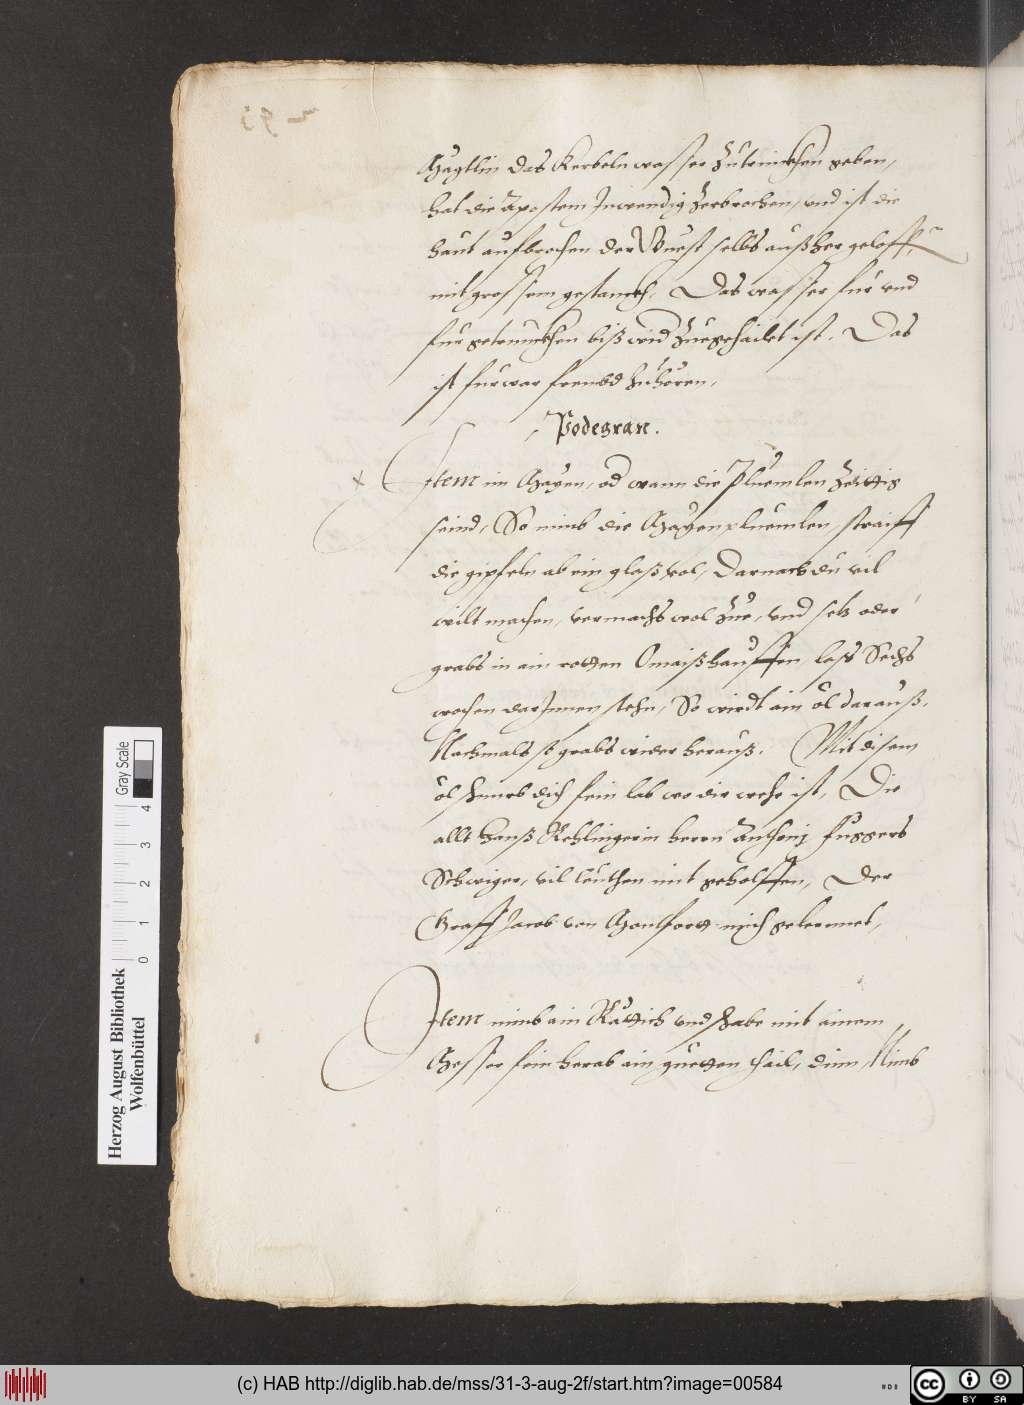 Mägtlin das Kerbelnwasser zutrinckhen geben,
hat die Apostem Inwendig Zerbrochen, vnd ist die
haut aufbrochen der Wuest selbs außher geloff:
mit grossem gestanckh. Das wasser fur vnd
für getrunckhen biß wid Zuegehailet ist. Das
ist furwar frembd Zuhören.
Podegran.
Item im Mayen, od wann die Plüemlen Zeittig
seind, So nimb die Mayenplüemlen straiff
die gipfeln ab ein glaß vol, Darnach du vil
wilt machen, vermachs wol Zue, vnd setz oder
grabs in ain rotten Omaißhauffen laß Sechs
wochen darInnen stehn, So wirdt ain öl darauß.
Nachmals so grabs wider herauß. Mit disem
öl schmirb dich fein lab wo dir wehe ist, Die
allt Hanß Rehlingerin herrn Anthonj Fuggers
Schwiger, vil leuthen mit geholffen, Der
Graff Jacob von Montfortt mich gelernnet,
Item nimb ain Rättich vnd schabe mit ainem
Messer fein herab ain guetten thail, dinn, Nimb
Herzog August Bibliothek
Wolfenbüttel
Gray Scale
0 1 2 3 4
(c) HAB http://diglib.hab.de/mss/31-3-aug-2f/start.htm?image=00584
cc BY SA